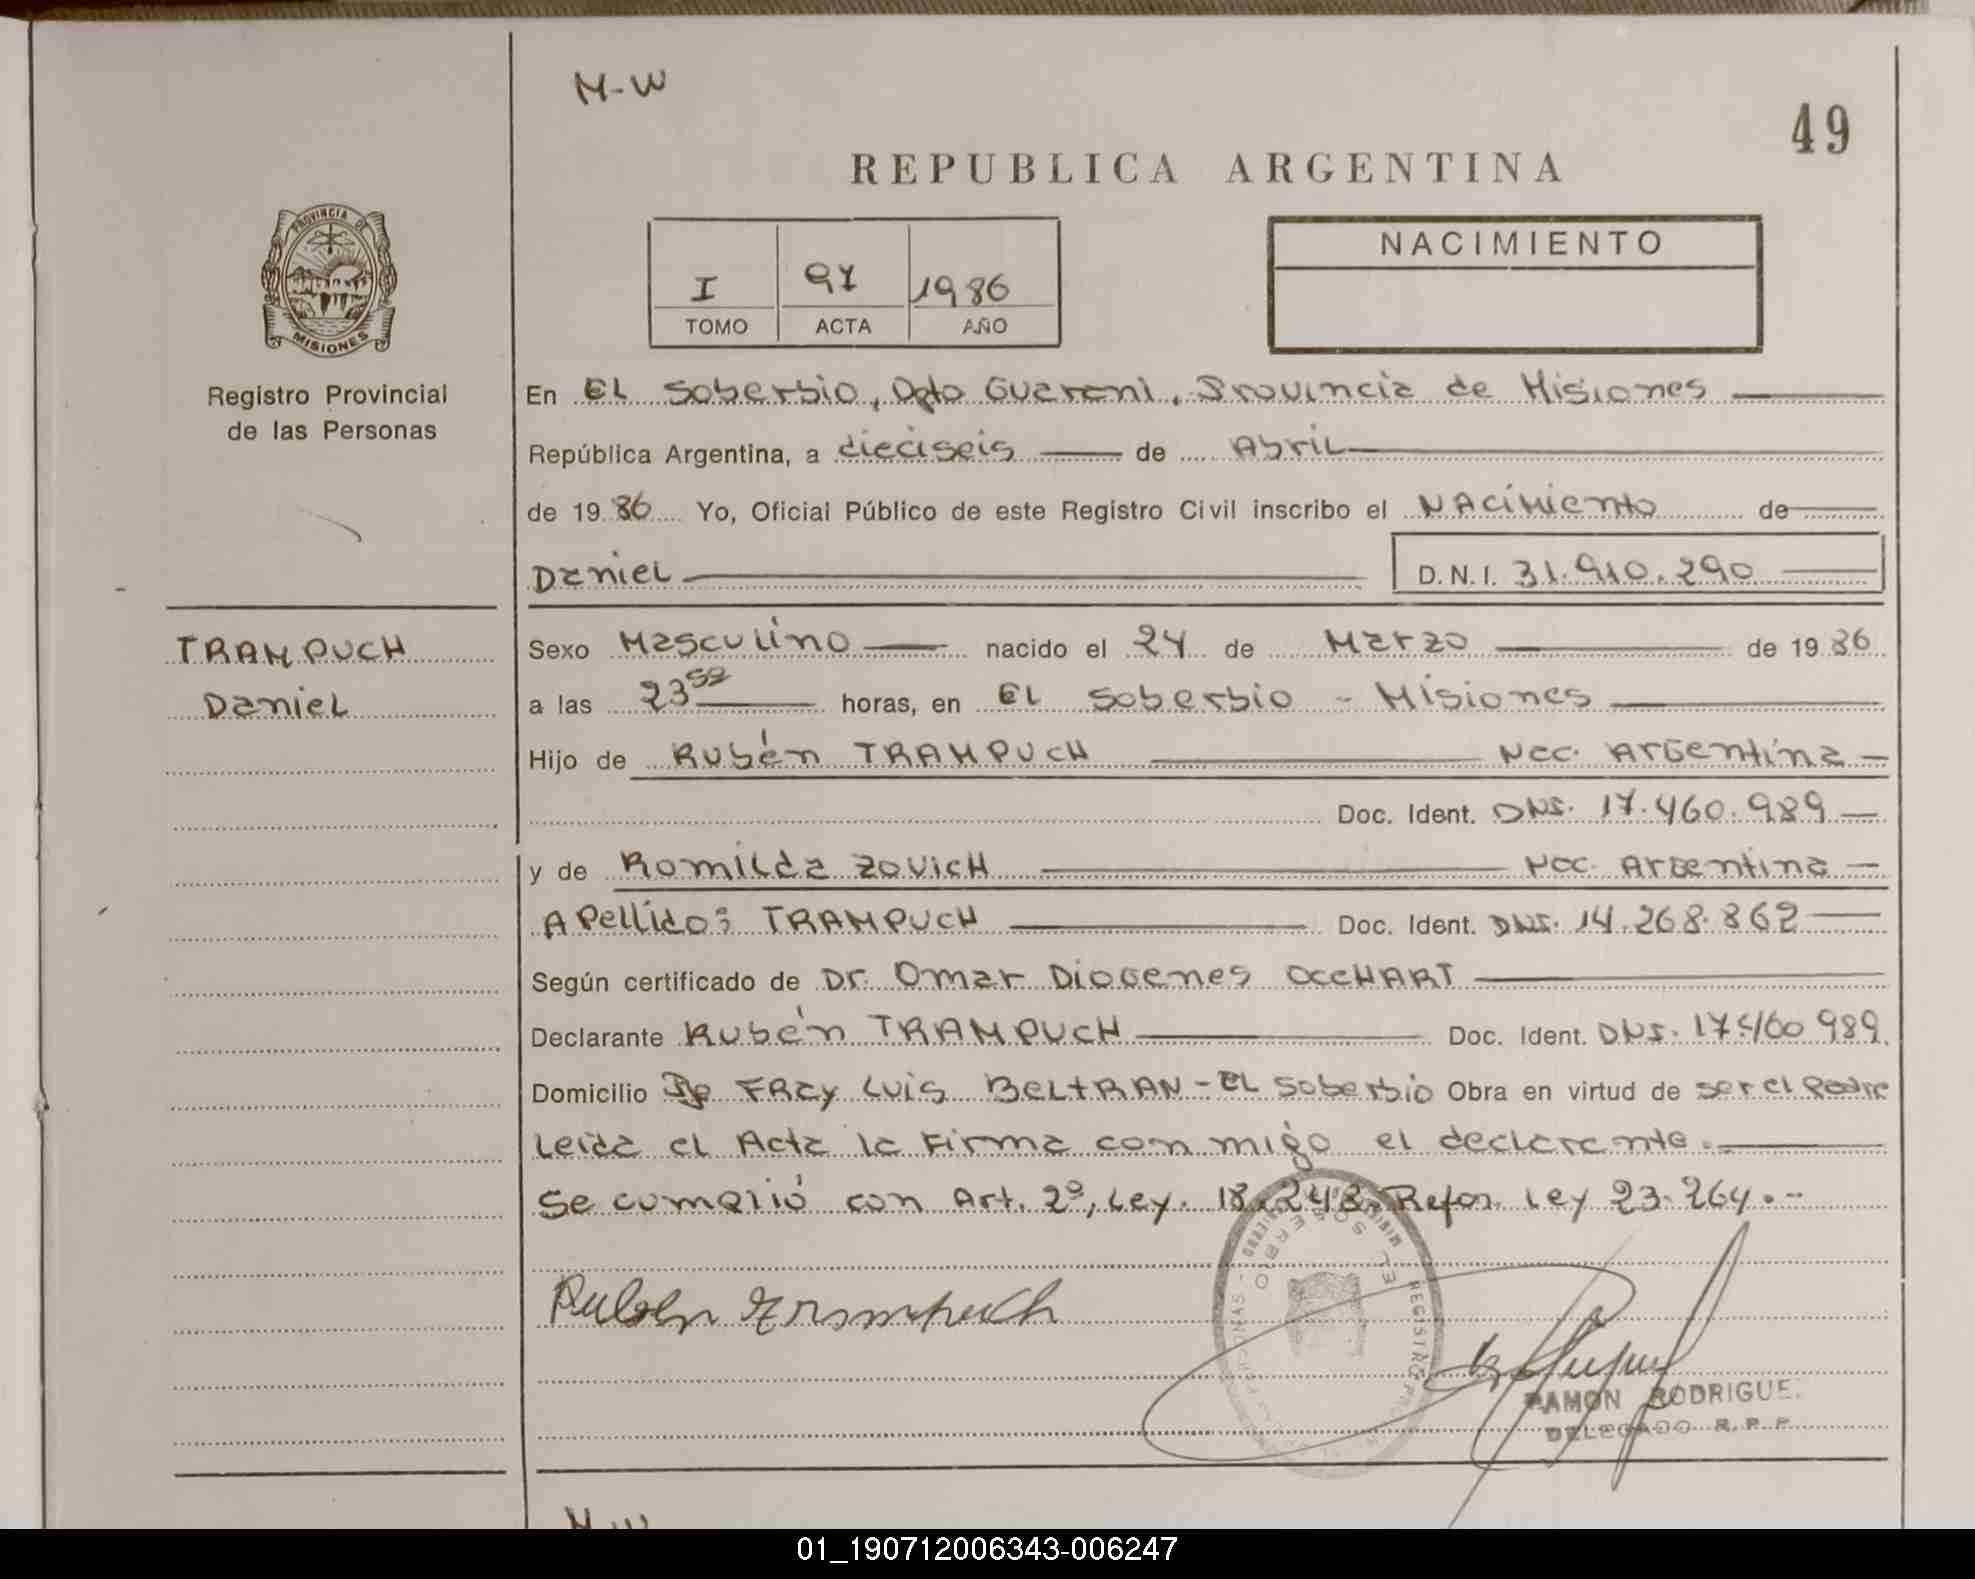 M-W
49
REPUBLICA ARGENTINA
PROVINCIA DE
MISIONES
I 97 1986
TOMO ACTA AÑO
NACIMIENTO
Registro Provincial
de las Personas
En EL Soberbio, Dpto Guarani, Provincia de Misiones
República Argentina, a dieciseis de Abril
de 1986 Yo, Oficial Público de este Registro Civil inscribo el Nacimiento de
Daniel D.N.I. 31.910.290
TRAMPUCH
Daniel
Sexo Masculino nacido el 24 de Marzo de 1986
a las 23 52 horas, en EL Soberbio - Misiones
Hijo de Rubén TRAMPUCH Nac. Argentina
Doc. Ident. DNI. 17.460.989
y de Romilda Zovich Nac. Argentina
Apellido: TRAMPUCH Doc. Ident. DNI. 14.268.862
Según certificado de Dr. Omar Diogenes OCCHART
Declarante Rubén TRAMPUCH Doc. Ident. DNI. 17.460 989.
Domicilio Fray Luis BELTRAN - EL Soberbio Obra en virtud de ser el Padre
Leida el Acta la Firma con migo el declarante.
Se cumplió con Art. 2º, Ley. 18.248. Refor. Ley 23.264.-
Ruben Trampuch
EL SOBERBIO
REGISTRO
RAMON RODRIGUE
DELEGADO R.P.P
M-W
01_190712006343-006247